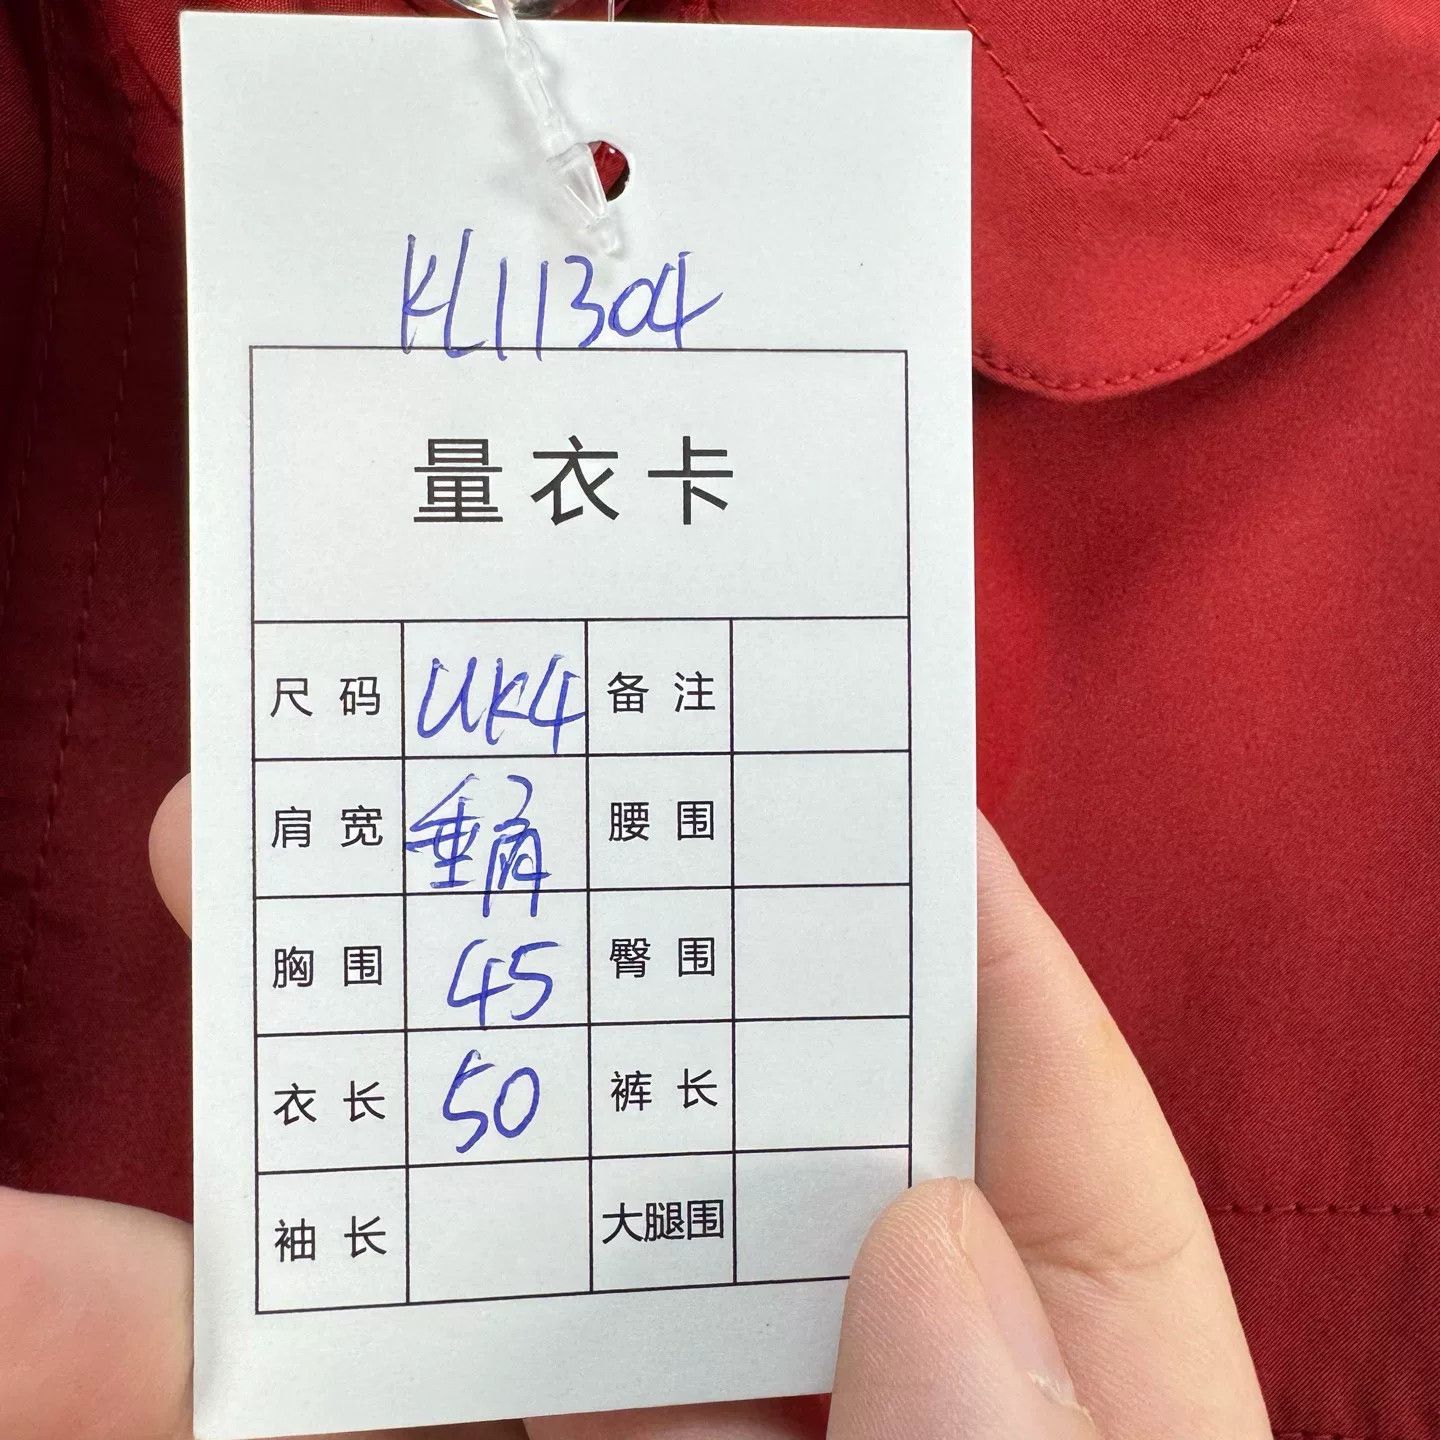 KL11304
量衣卡
尺码 UK4 备注
肩宽 垂肩 腰围
胸围 45 臀围
衣长 50 裤长
袖长 大腿围